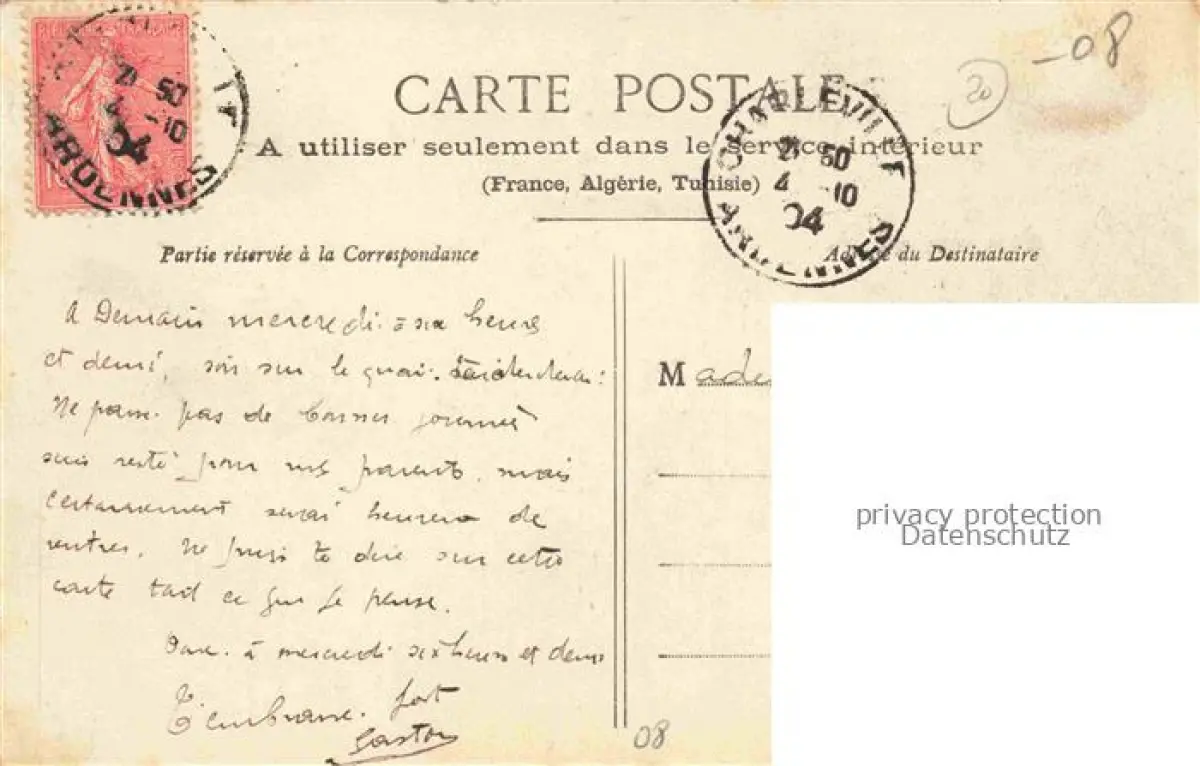 CARTE POSTALE
A utiliser seulement dans le service intérieur
(France, Algérie, Tunisie)
ARDENNES
21 50
4 -10
04
CHARLEVILLE
21 50
4 -10
04
ARDENNES
20
-08
Partie réservée à la Correspondance
Adresse du Destinataire
A Demain mercredi à six heures
et demi, sois sur le quai.
Ne passe pas de bonnes journées
suis resté pour mes parents, mais
certainement serai heureux de
rentrer. Ne puis te dire sur cette
carte tout ce que je pense.
Donc à mercredi six heures et demi
T'embrasse fort
Gaston
M
08
privacy protection
Datenschutz